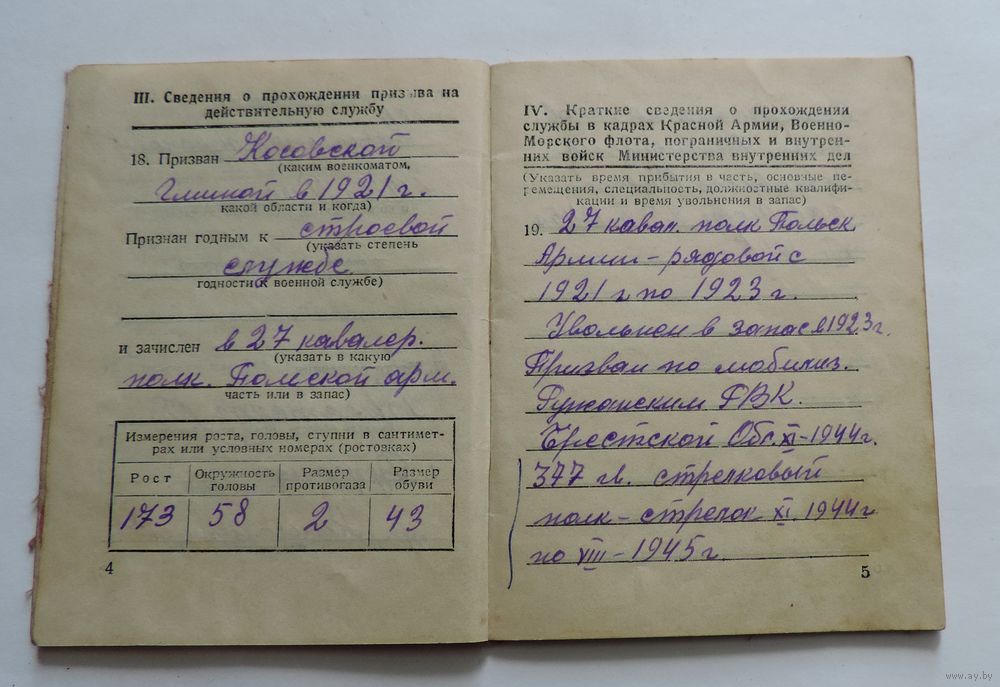 III. Сведения о прохождении призыва на
действительную службу
18. Призван Косовской
(каким военкоматом,
Гминой в 1921 г.
какой области и когда)
Признан годным к строевой
(указать степень
службе
годности к военной службе)
и зачислен в 27 кавалер.
(указать в какую
полк. Польской арм.
часть или в запас)
Измерения роста, головы, ступни в сантимет-
рах или условных номерах (ростовках)
Рост Окружность головы Размер противогаза Размер обуви
173 58 2 43
4
IV. Краткие сведения о прохождении
службы в кадрах Красной Армии, Военно-
Морского флота, пограничных и внутрен-
них войск Министерства внутренних дел
(Указать время прибытия в часть, основные пе-
ремещения, специальность, должностные квалифи-
кации и время увольнения в запас)
19. 27 кавал. полк Польск.
Армии - рядовой с
1921 г по 1923 г.
Уволен в запас в 1923 г.
Призван по мобилиз.
Ружанским РВК.
Брестской Обс. XI-1944 г.
347 гв. стрелковый
полк - стрелок XI. 1944 г
по VIII - 1945 г.
5
www.ay.by